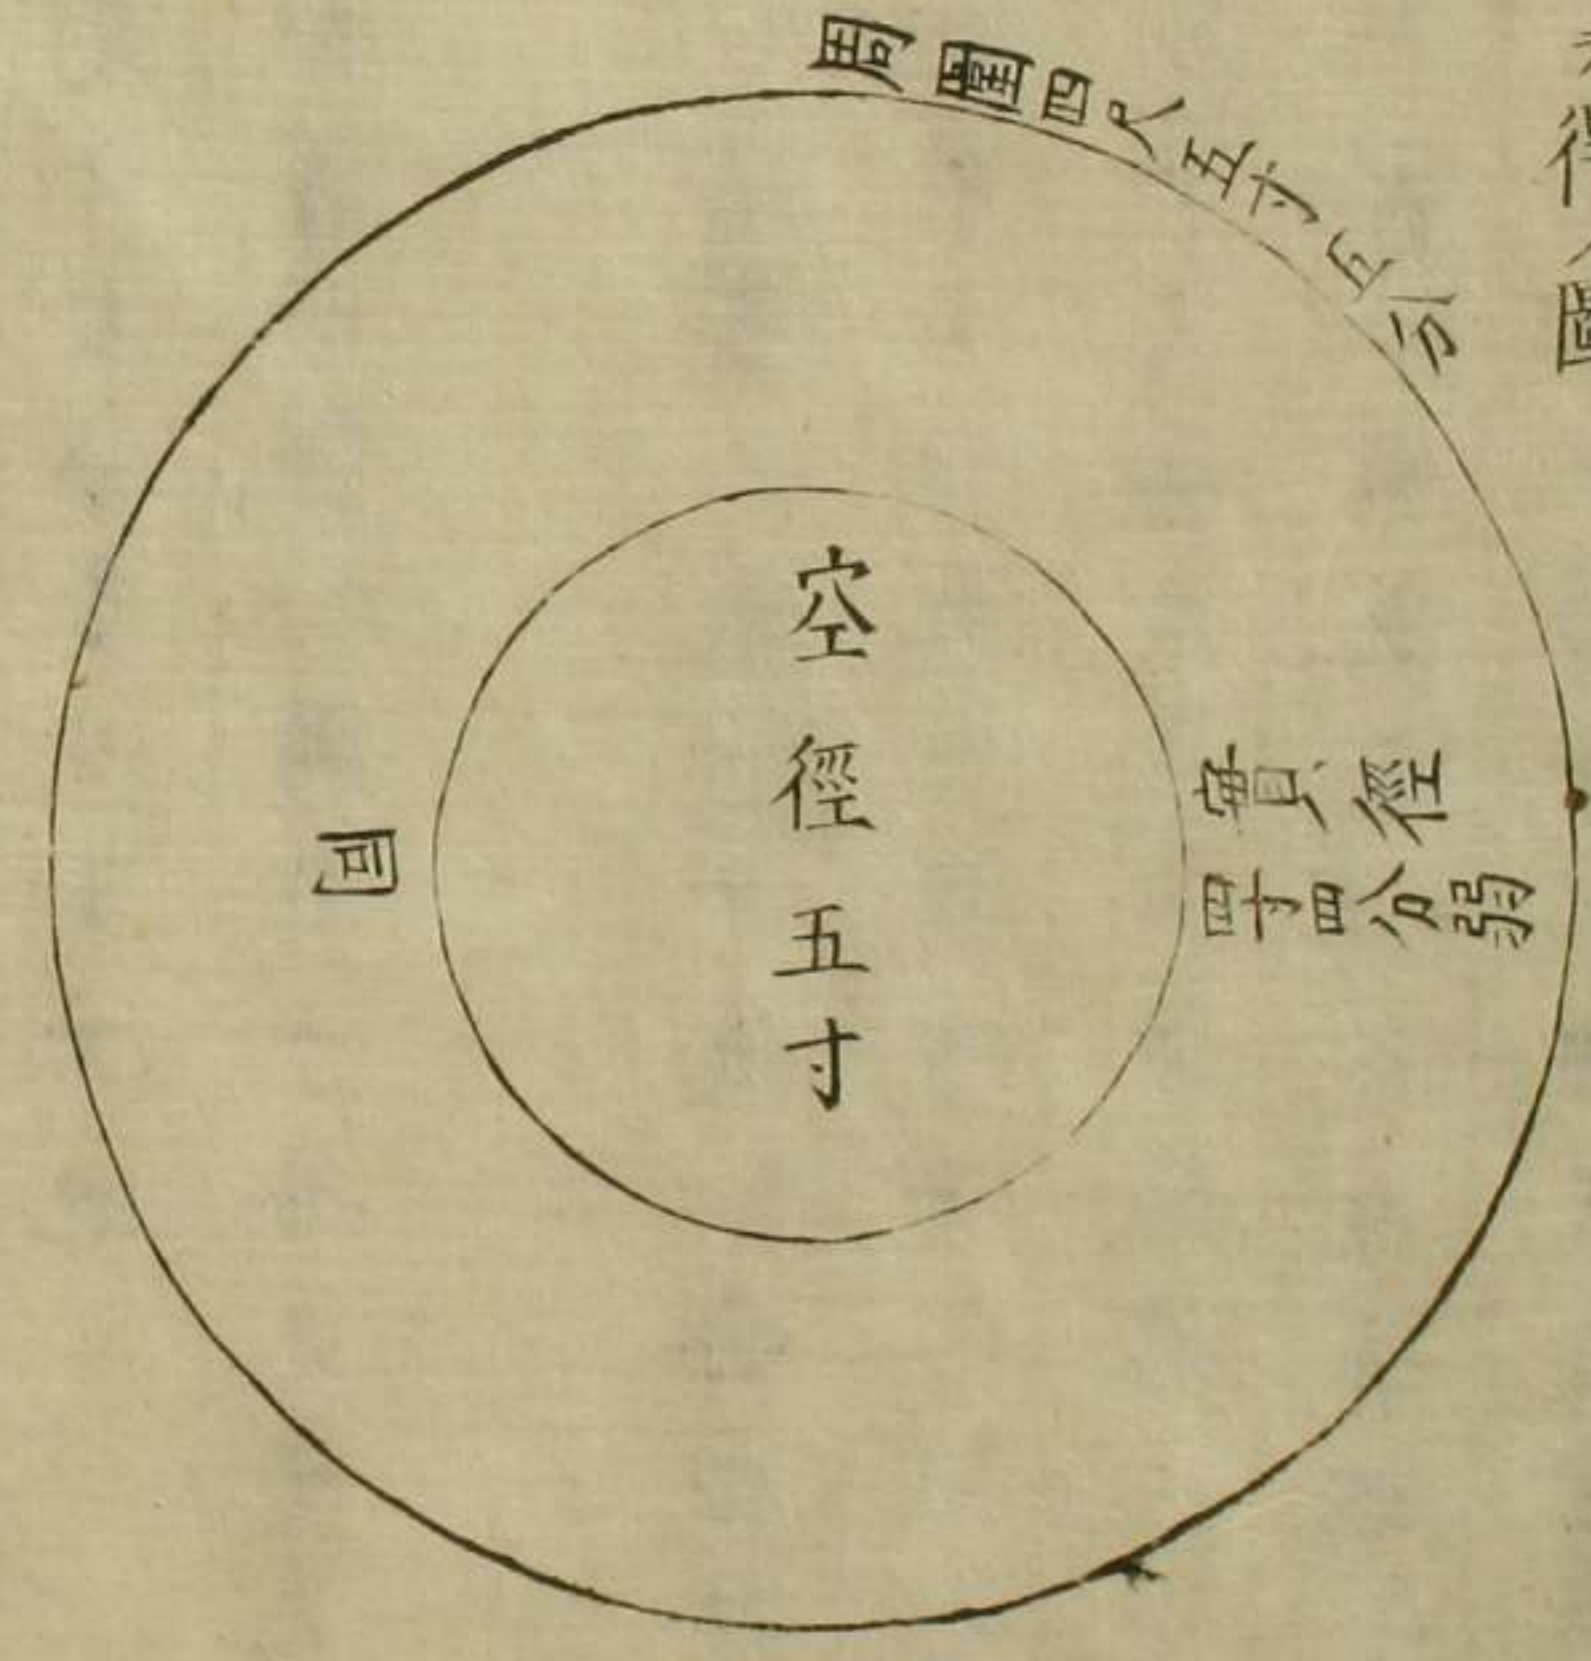 周圍四尺五寸五分
空徑五寸
實徑
四寸四分弱
同